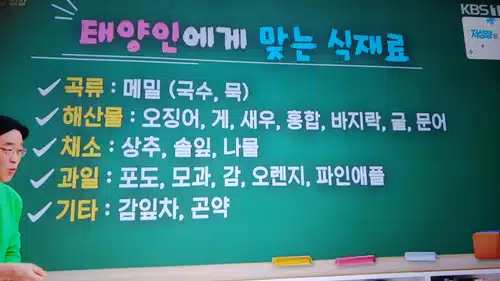 KBS 1
태양인에게 맞는 식재료
✓ 곡류 : 메밀 (국수, 묵)
✓ 해산물 : 오징어, 게, 새우, 홍합, 바지락, 굴, 문어
✓ 채소 : 상추, 솔잎, 나물
✓ 과일 : 포도, 모과, 감, 오렌지, 파인애플
✓ 기타 : 감잎차, 곤약